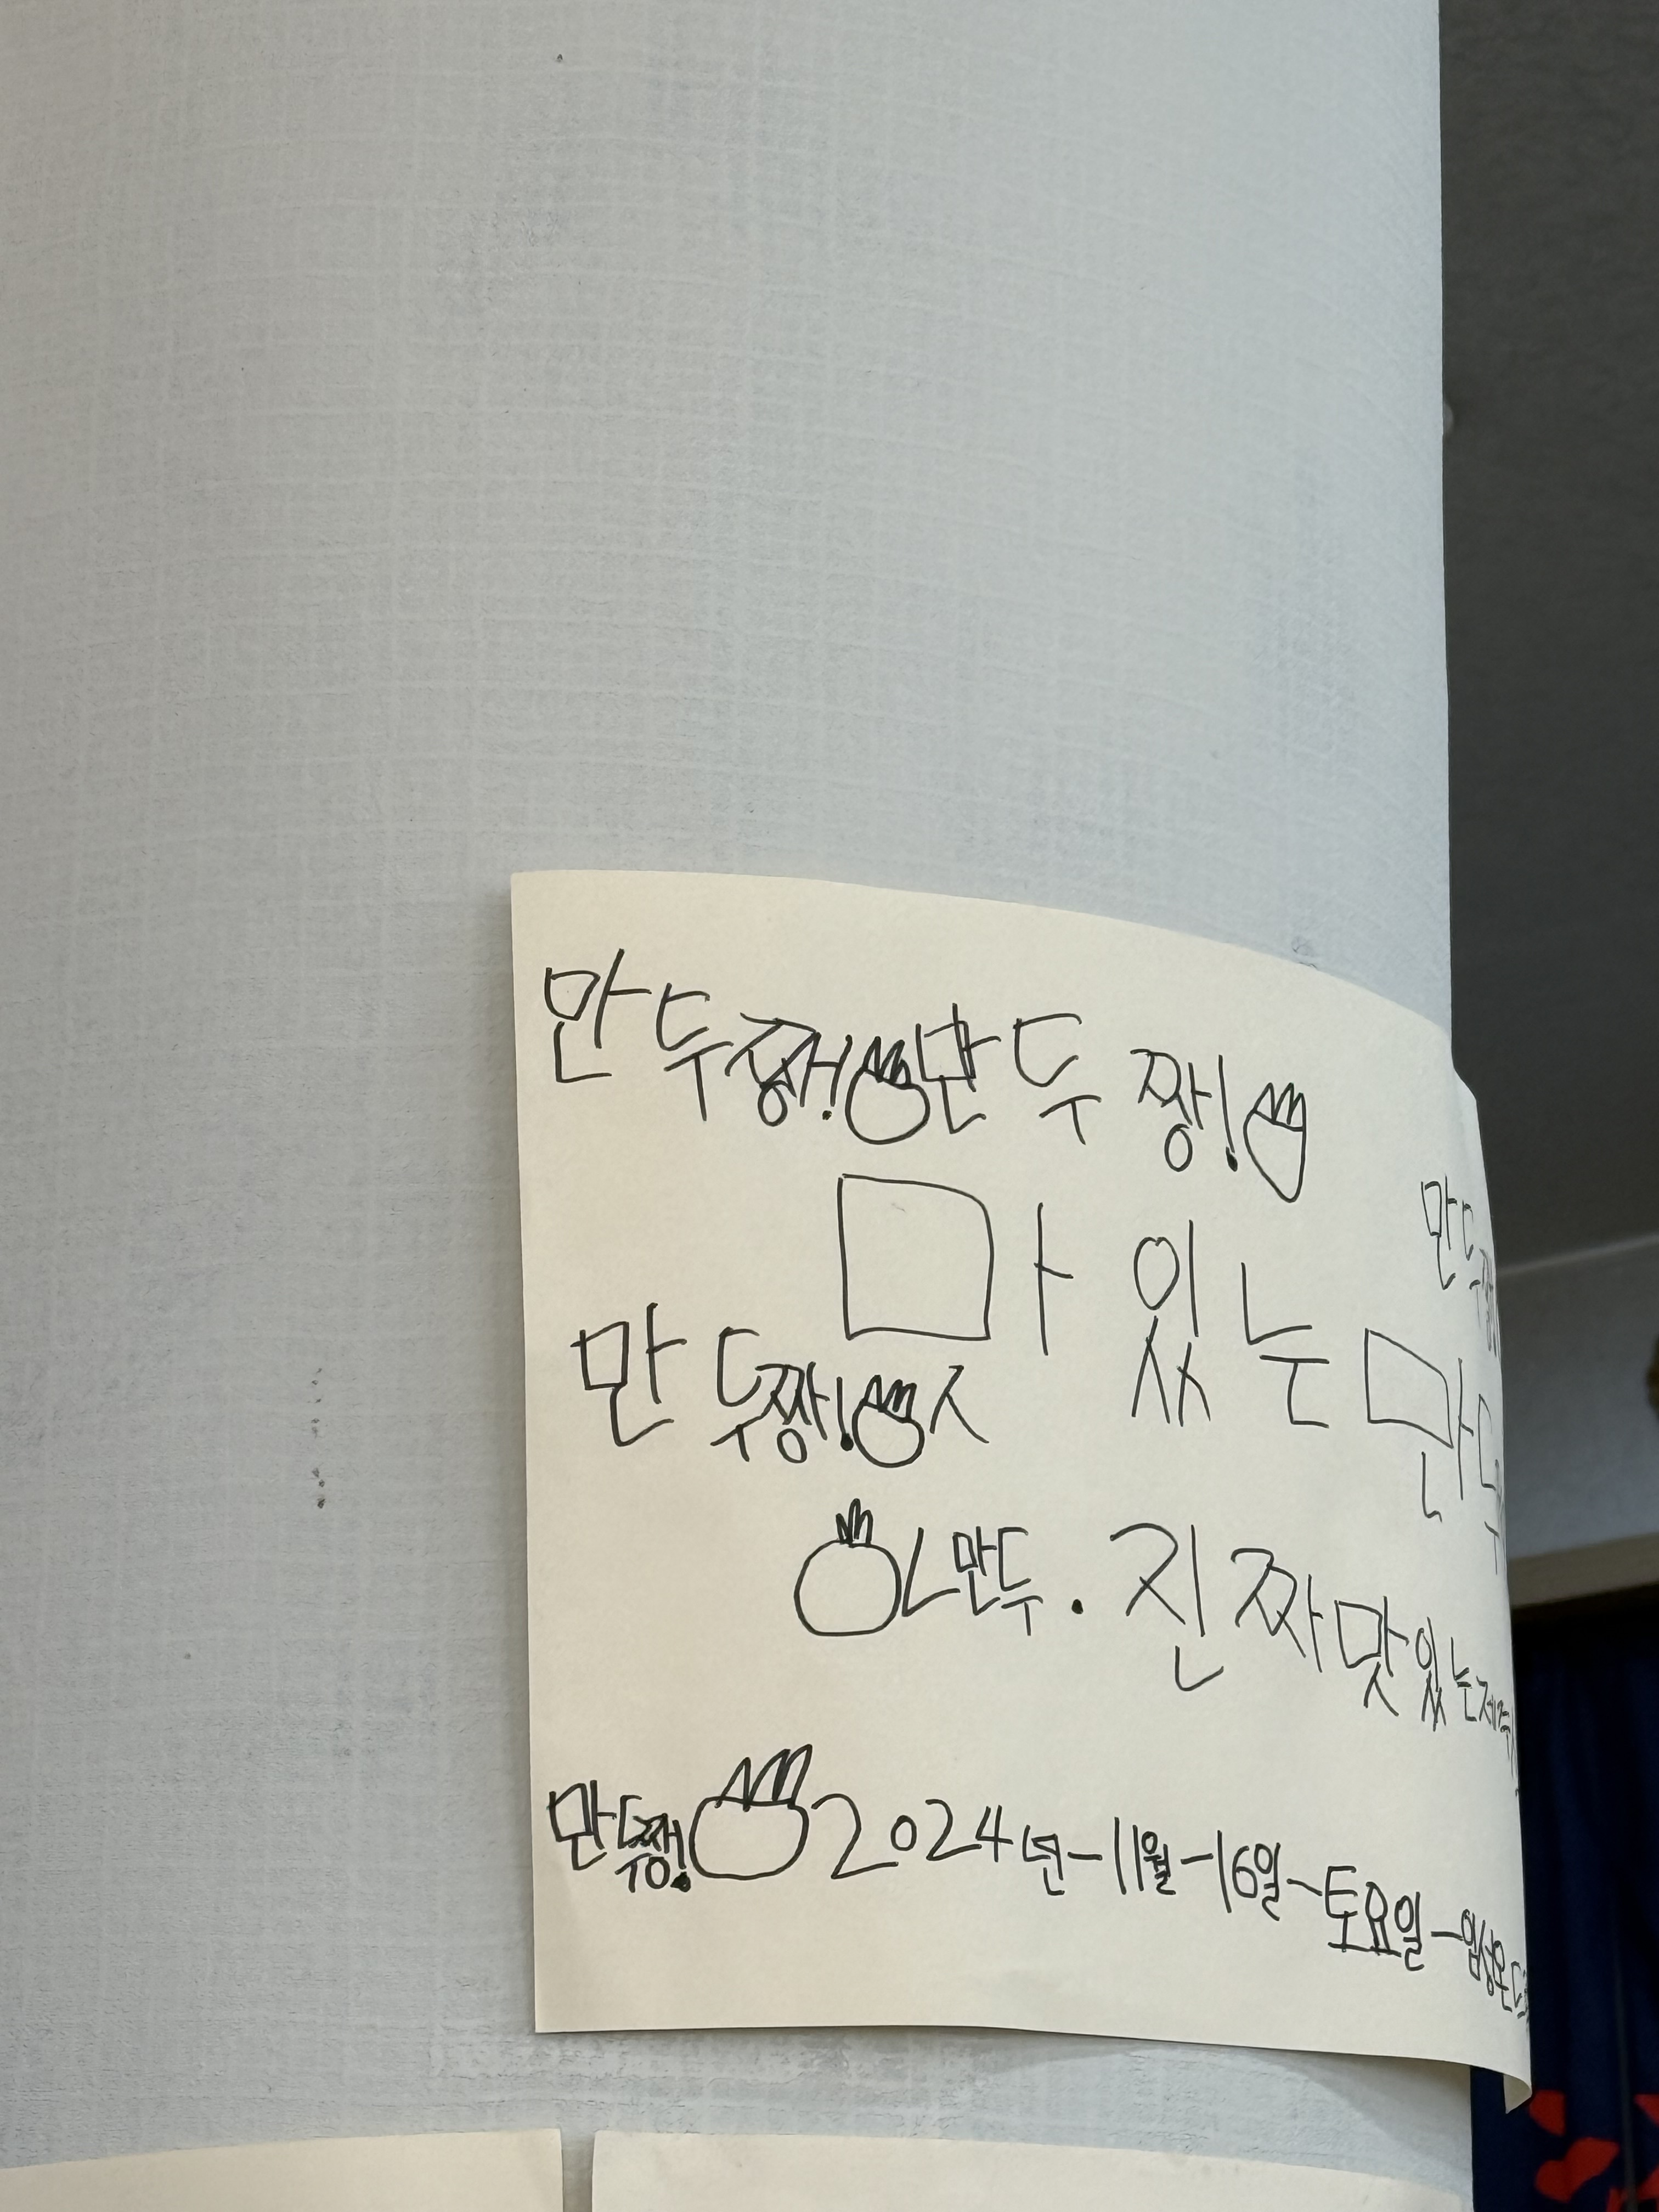 만두짱! 만두 짱!
만두짱
맛있는 만두
만두짱!
만두. 진짜 맛있는 제주
만두짱! 2024년-11월-16일-토요일-임성온